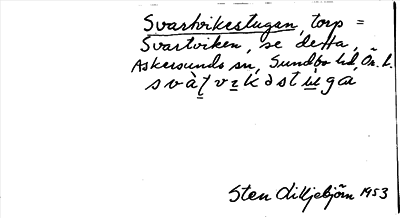 Svartvikestugan, torp =
Svartviken, se detta,
Askersunds sn, Sundbo hd, Ör. l.
svàṭvɪkəstùga
Sten Liljebjörn 1953